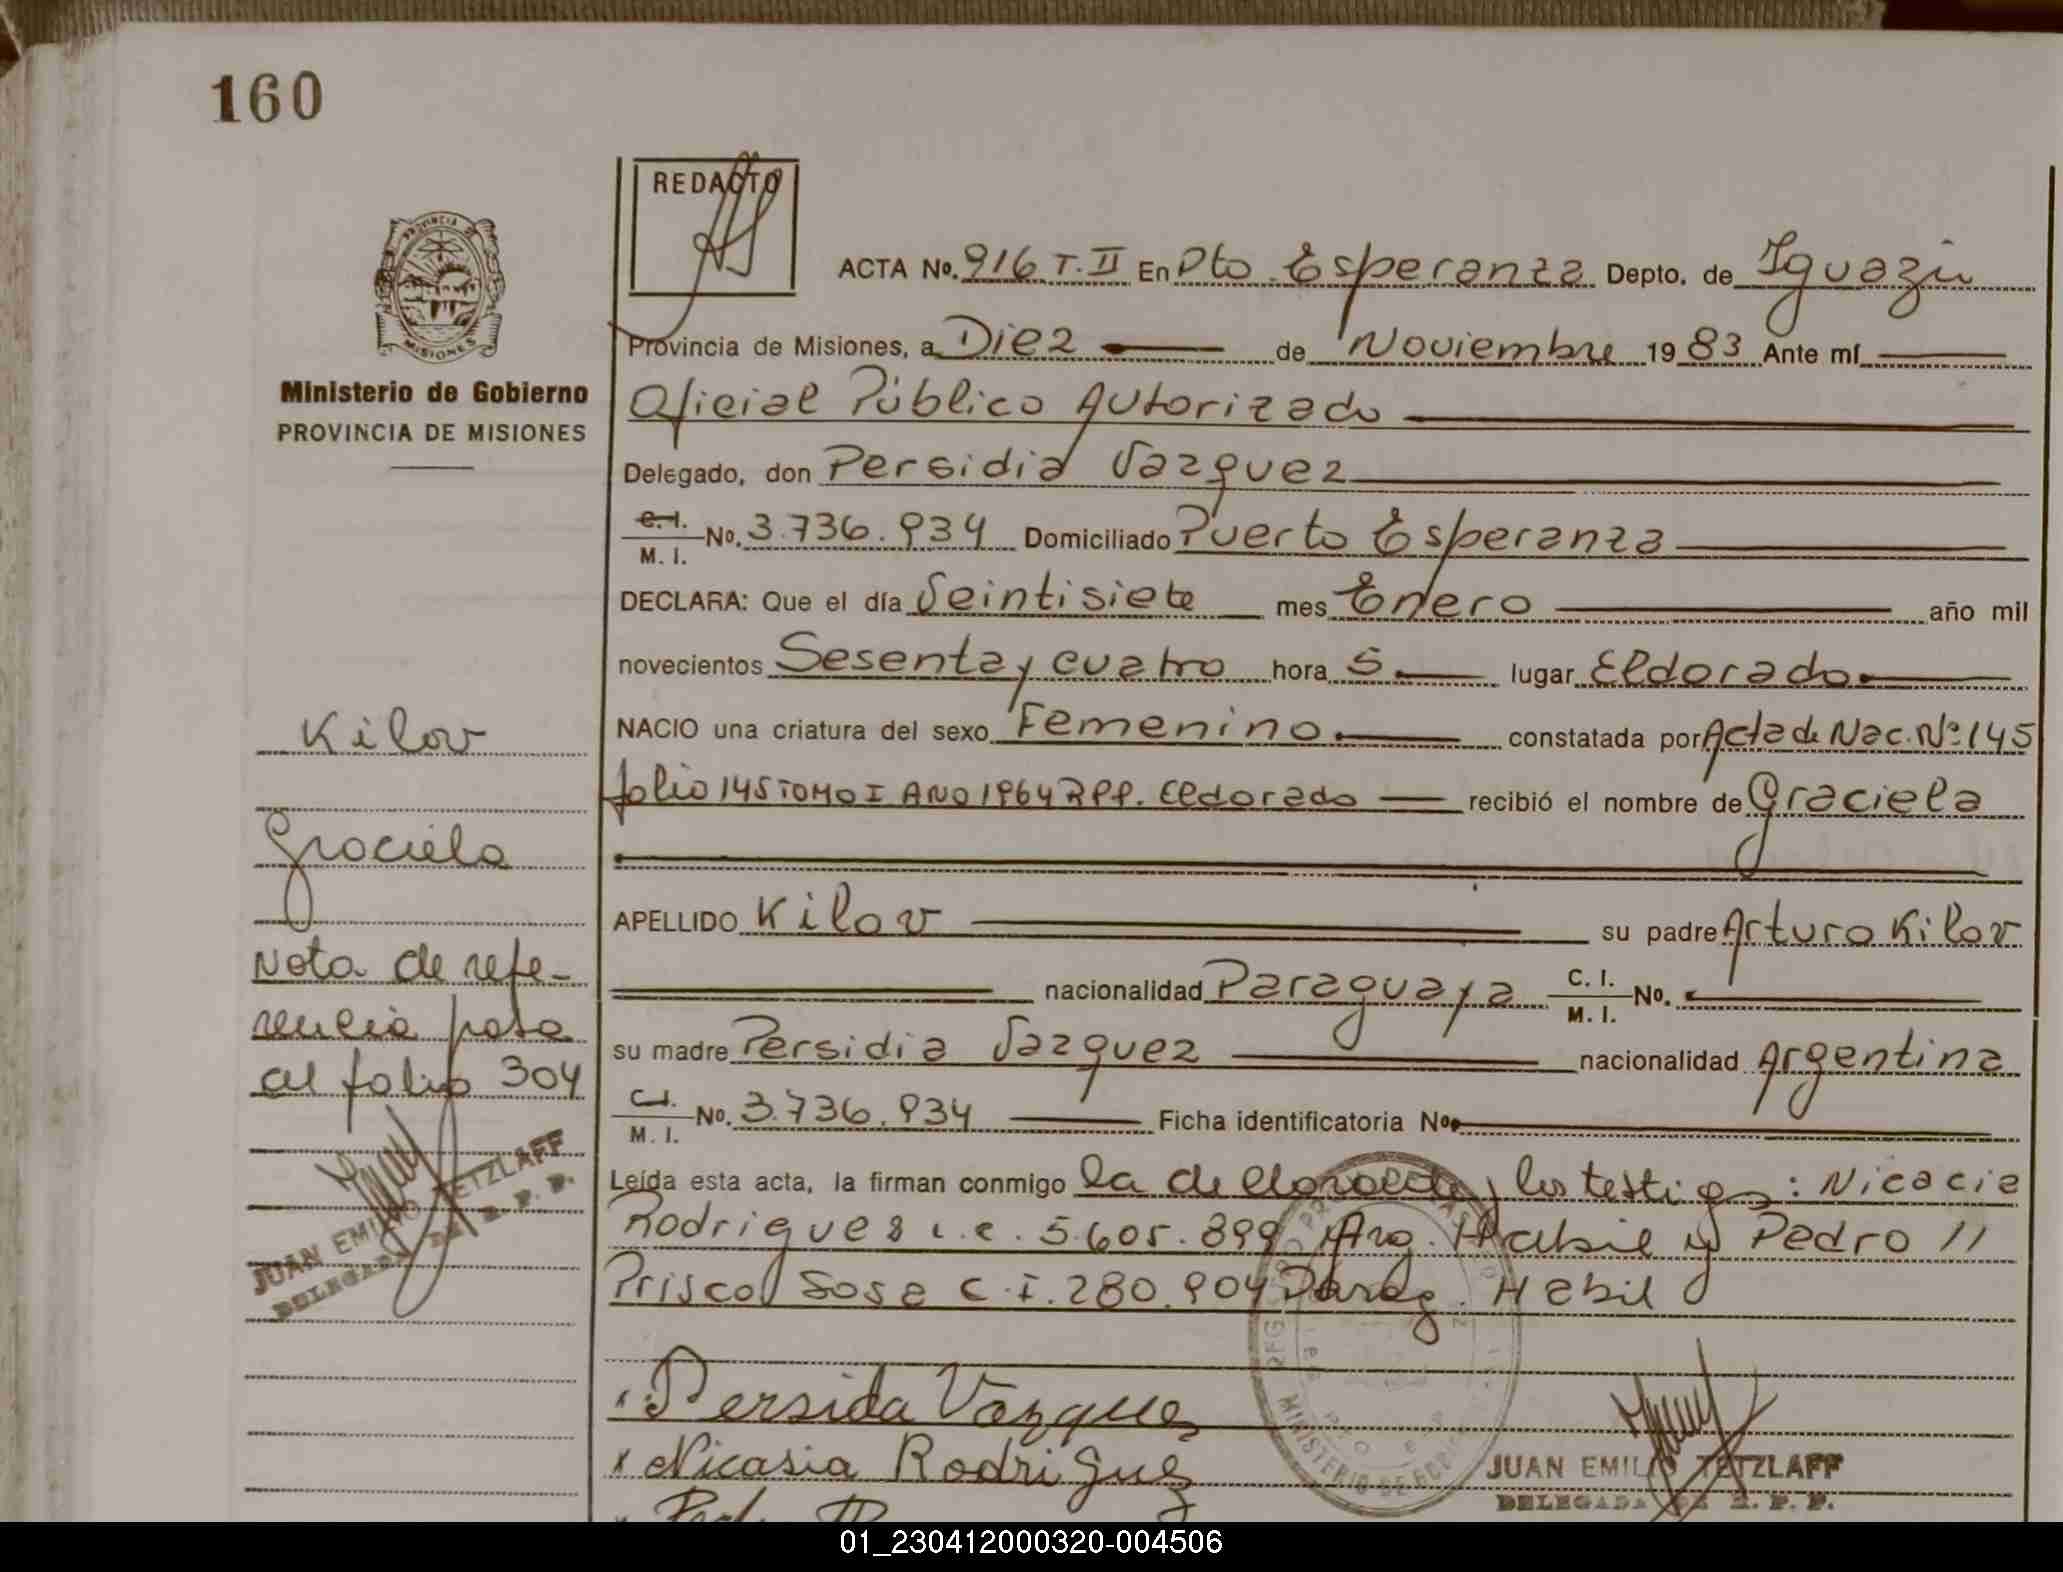 160
REDACTO
ACTA No. 916 T. II En Pto Esperanza Depto. de Iguazú
Provincia de Misiones, a Diez de Noviembre 1983 Ante mí
Oficial Público Autorizado
Delegado, don Persidia Vazquez
C.I. M. I. No. 3.736.934 Domiciliado Puerto Esperanza
DECLARA: Que el día Veintisiete mes Enero año mil
novecientos Sesenta y cuatro hora 5 lugar Eldorado
NACIO una criatura del sexo Femenino constatada por Acta de Nac. Nº 145
folio 145 TOMO I AÑO 1964 RPP. Eldorado recibió el nombre de Graciela
APELLIDO Kilov su padre Arturo Kilov
nacionalidad Paraguaya C. I. M. I. No.
su madre Persidia Vazquez nacionalidad Argentina
C.I. M. I. No. 3.736.934 Ficha identificatoria No
Leída esta acta, la firman conmigo la y los testigos: Nicacia
Rodrigues L.C. 5.605.899 Arg. Habil y Pedro //
Prisco Sosa C.I. 280.904 Parag. Habil
Persida Vazquez
Nicasia Rodrigues
JUAN EMILIO TETZLAFF
DELEGADA DE R. P. P.
MINISTERIO DE
PROVINCIA
MISIONES
Ministerio de Gobierno
PROVINCIA DE MISIONES
Kilov
Graciela
Nota de refe-
rencia pasa
al folio 304
JUAN EMILIO TETZLAFF
DELEGADA DE R. P. P.
01_230412000320-004506